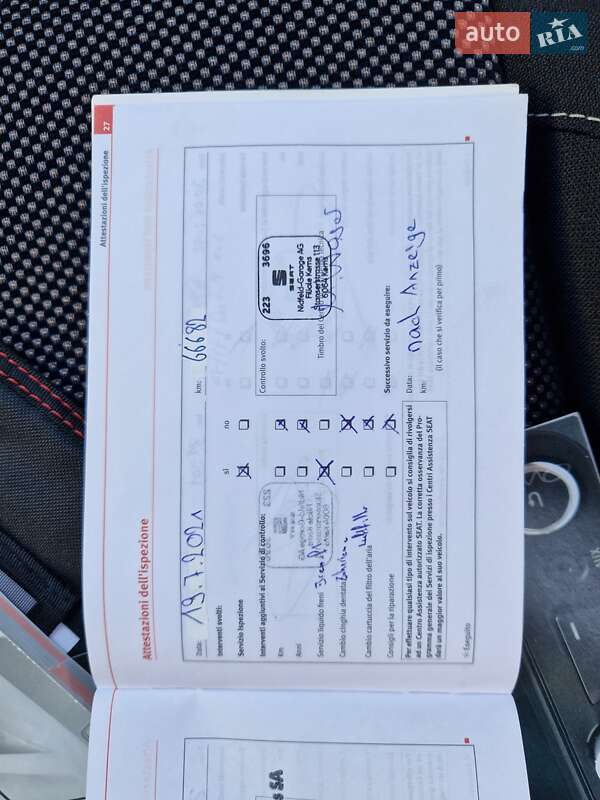 auto RIA.com
27
Attestazioni dell'ispezione
Attestazioni dell'ispezione
Data: 19.7.2021 km: 66682
Interventi svolti: sì no
Servizio Ispezione
Interventi aggiuntivi al Servizio di controllo:
Km
Anni
Servizio liquido freni
Cambio cinghia dentata
Cambio cartuccia del filtro dell'aria
Consigli per la riparazione
Controllo svolto:
223 3696
S
SEAT
Nidfeld-Garage AG
Filiale Kerns
Stanserstrasse 113
6064 Kerns
Timbro del
Successivo servizio da eseguire:
Data: nach Anzeige
km:
(il caso che si verifica per primo)
Per effettuare qualsiasi tipo di intervento sul veicolo si consiglia di rivolgersi
ad un Centro Assistenza autorizzato SEAT. La corretta osservanza del Pro-
gramma generale dei Servizi di ispezione presso i Centri Assistenza SEAT
darà un maggior valore al suo veicolo.
Eseguito
s SA